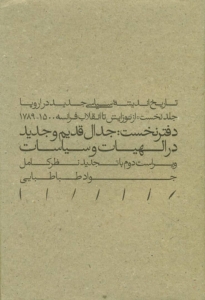 تاریخ اندیشهٔ سیاسی جدید در اروپا
جلد نخست: از نوزایش تا انقلاب فرانسه ۱۵۰۰-۱۷۸۹
دفتر نخست: جدال قدیم و جدید
در الهیات و سیاسات
ویراست دوم با تجدید نظر کامل
جواد طباطبایی